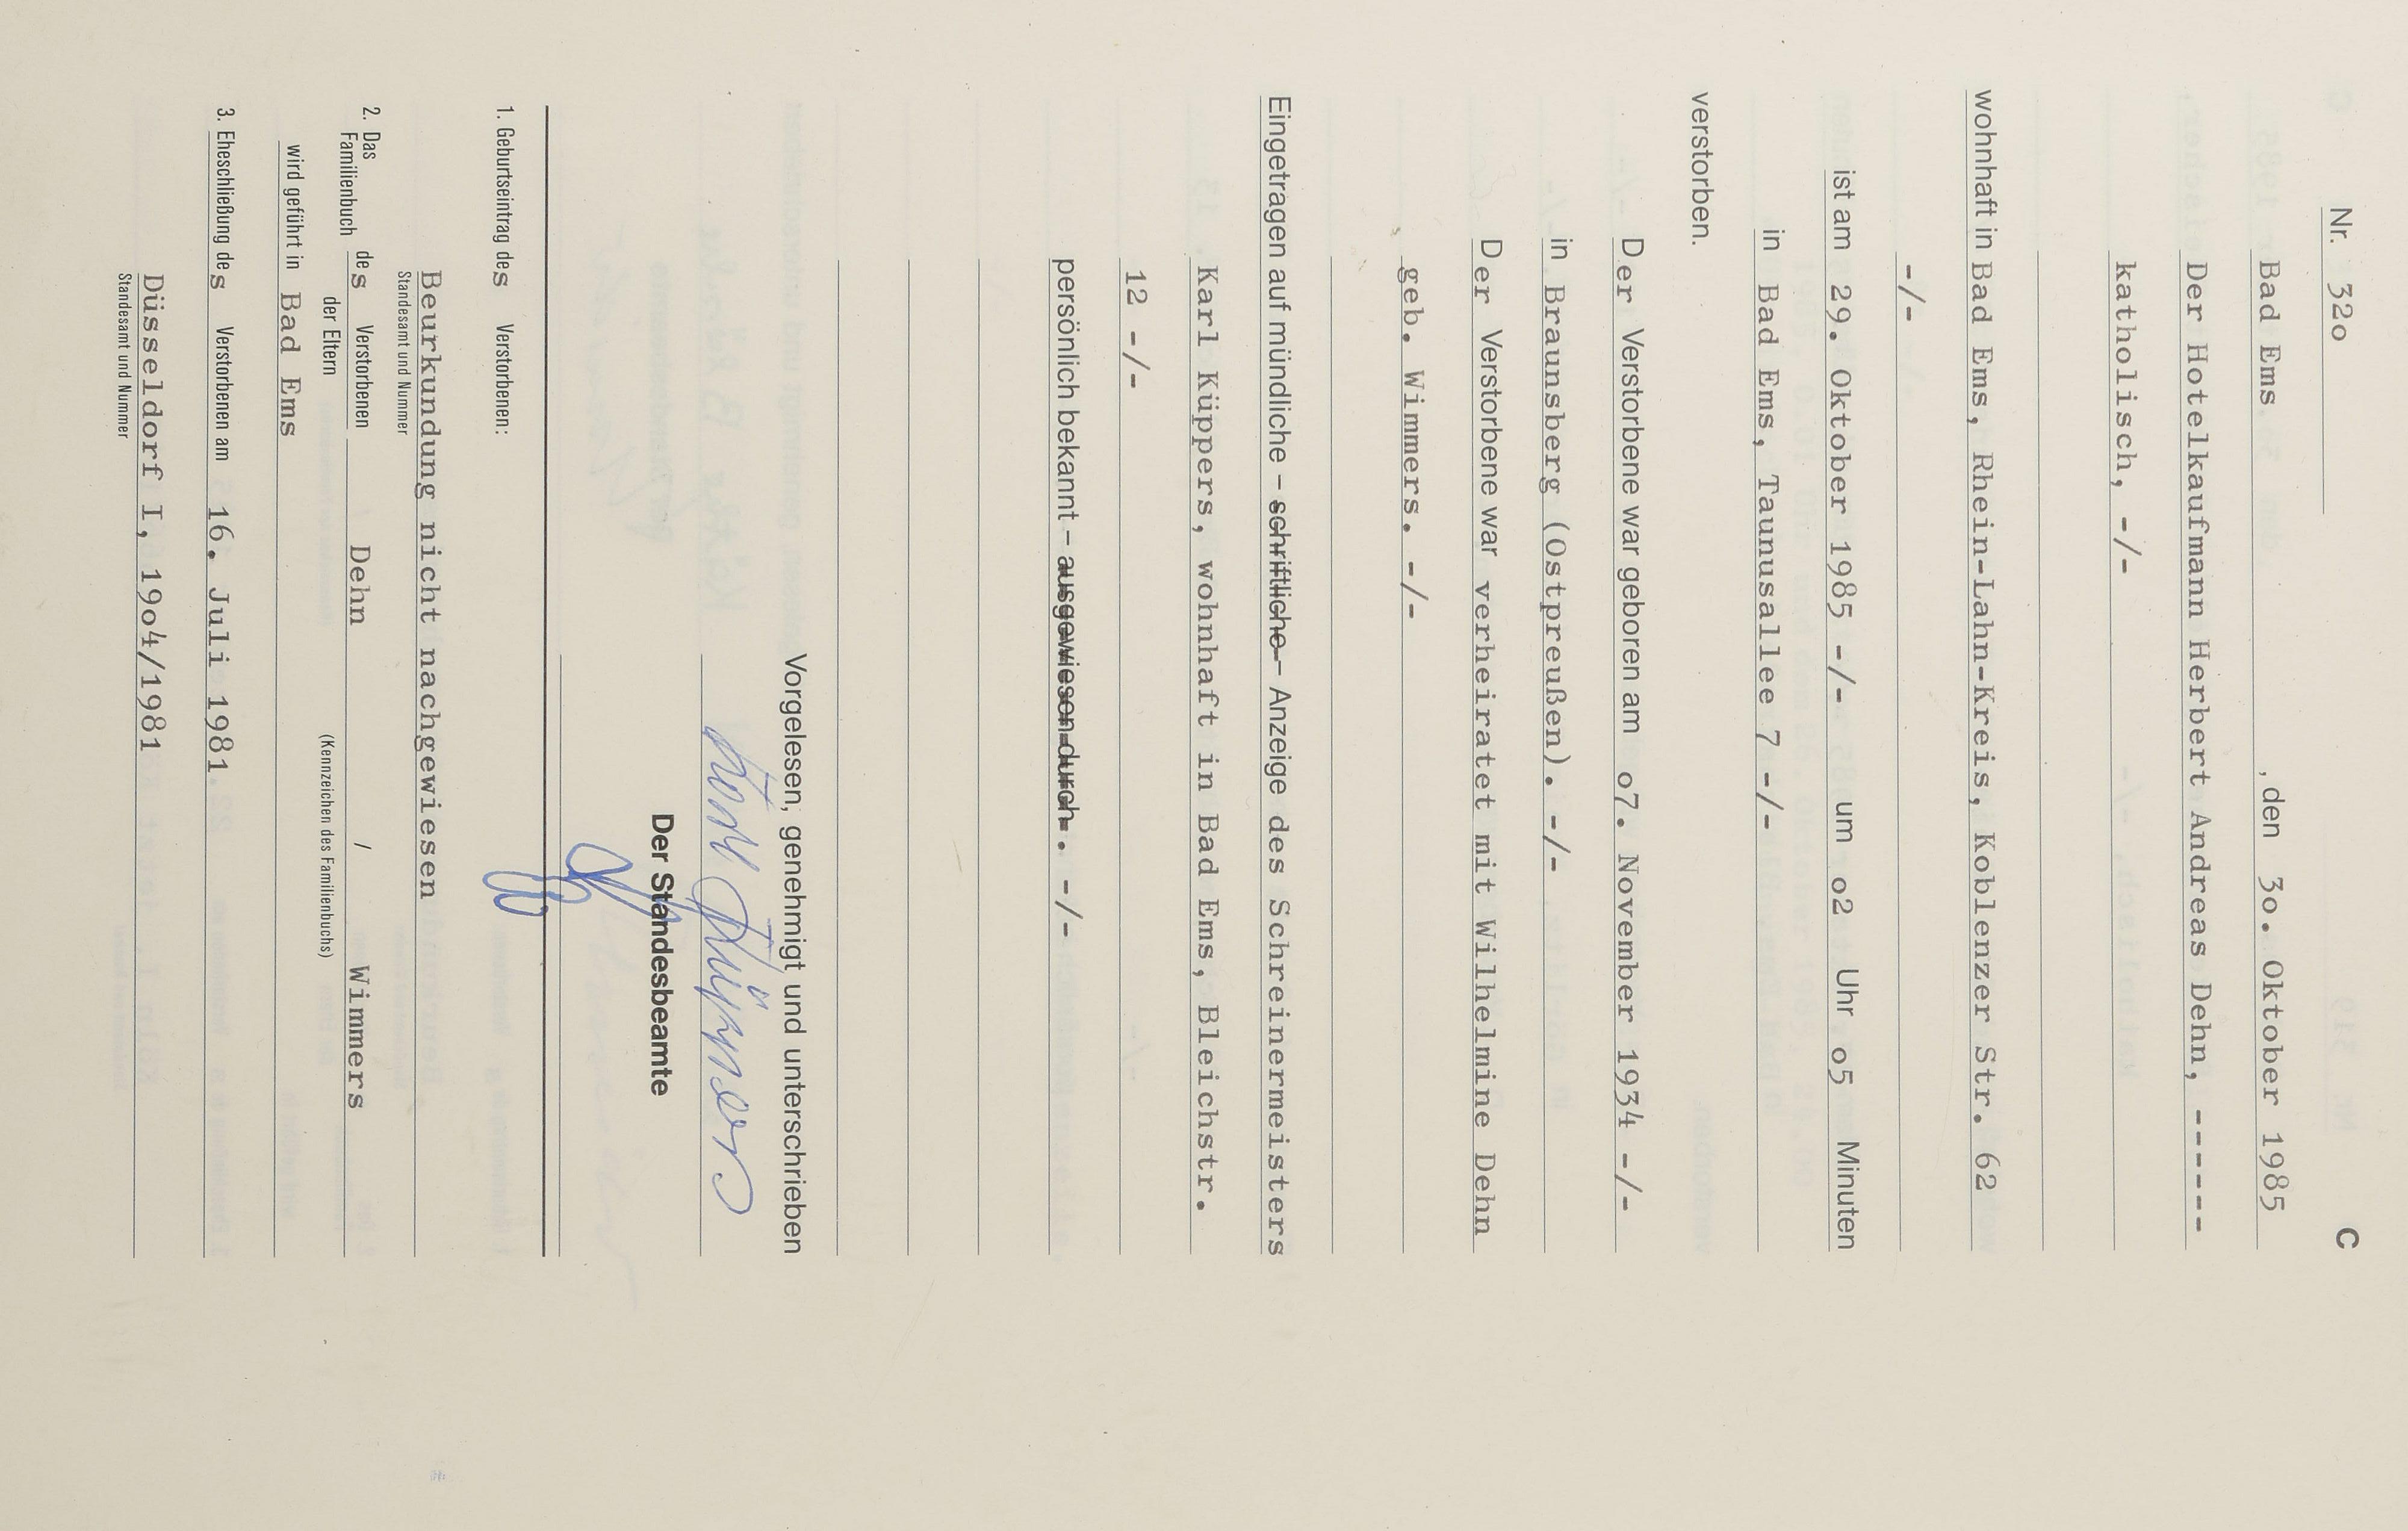 C
Nr. 32o
Bad Ems , den 3o. Oktober 1985
Der Hotelkaufmann Herbert Andreas Dehn, ------
katholisch, -/-
wohnhaft in Bad Ems, Rhein-Lahn-Kreis, Koblenzer Str. 62
-/-
ist am 29. Oktober 1985 -/- um o2 Uhr o5 Minuten
in Bad Ems, Taunusallee 7 -/-
verstorben.
Der Verstorbene war geboren am o7. November 1934 -/-
in Braunsberg (Ostpreußen). -/-
Der Verstorbene war verheiratet mit Wilhelmine Dehn
geb. Wimmers. -/-
Eingetragen auf mündliche – schriftliche – Anzeige des Schreinermeisters
Karl Küppers, wohnhaft in Bad Ems, Bleichstr.
12 -/-
persönlich bekannt – ausgewiesen durch. -/-
Vorgelesen, genehmigt und unterschrieben
Karl Küppers
Der Standesbeamte
1. Geburtseintrag des Verstorbenen:
Beurkundung nicht nachgewiesen
Standesamt und Nummer
2. Das Familienbuch des Verstorbenen Dehn / Wimmers
der Eltern (Kennzeichen des Familienbuchs)
wird geführt in Bad Ems
3. Eheschließung des Verstorbenen am 16. Juli 1981.
Düsseldorf I, 19o4/1981
Standesamt und Nummer